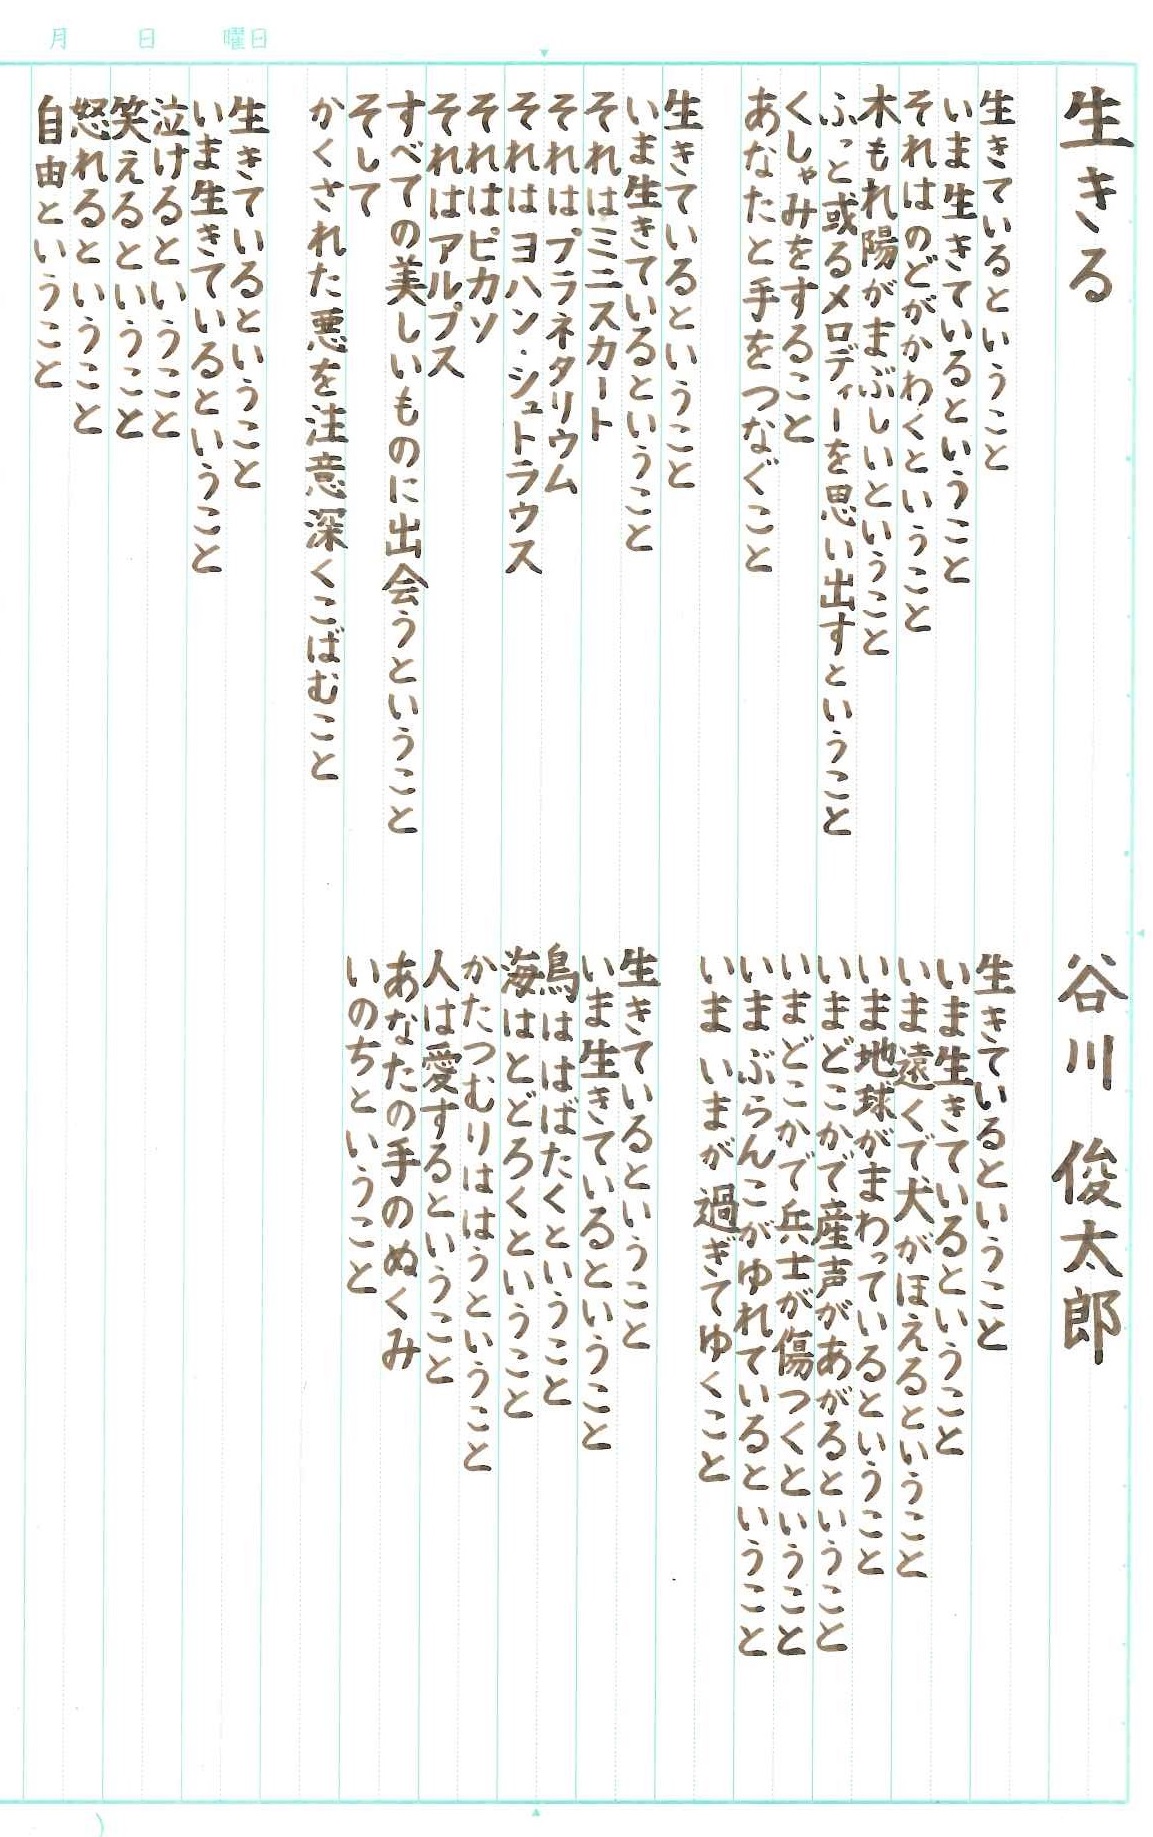 月 日 曜日
生きる
谷川 俊太郎
生きているということ
いま生きているということ
それはのどがかわくということ
木もれ陽がまぶしいということ
ふっと或るメロディーを思い出すということ
くしゃみをすること
あなたと手をつなぐこと
生きているということ
いま生きているということ
それはミニスカート
それはプラネタリウム
それはヨハン・シュトラウス
それはピカソ
それはアルプス
すべての美しいものに出会うということ
そして
かくされた悪を注意深くこばむこと
生きているということ
いま生きているということ
泣けるということ
笑えるということ
怒れるということ
自由ということ
生きているということ
いま生きているということ
いま遠くで犬がほえるということ
いま地球がまわっているということ
いまどこかで産声があがるということ
いまどこかで兵士が傷つくということ
いまぶらんこがゆれているということ
いまいまが過ぎてゆくこと
生きているということ
いま生きているということ
鳥ははばたくということ
海はとどろくということ
かたつむりははうということ
人は愛するということ
あなたの手のぬくみ
いのちということ